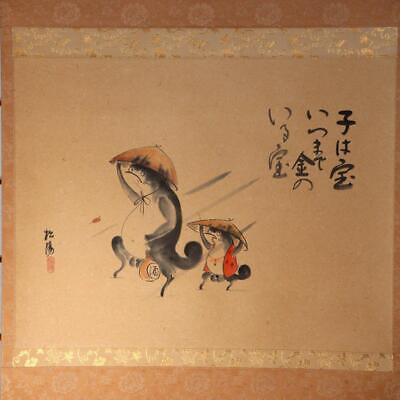 子は宝
いつまで
金の
いる宝
松陽